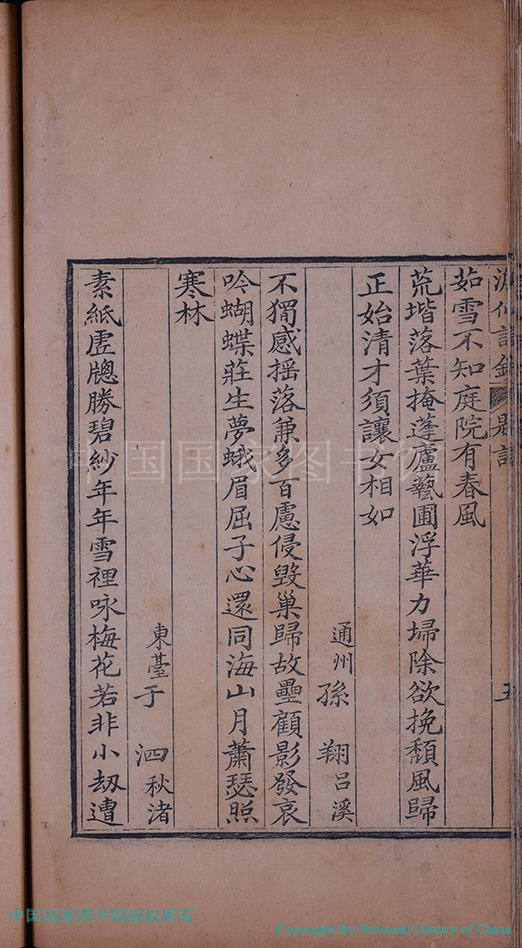 茹雪不知庭院有春風
荒堦落葉掩蓬廬藝圃浮華力埽除欲挽頹風歸
正始清才須讓女相如
通州孫翔呂溪
不獨感揺落兼多百慮侵毁巢歸故壘顧影發哀
吟蝴蝶莊生夢蛾眉屈子心還同海山月蕭瑟照
寒林
東臺于泗秋渚
素紙虛牕勝碧紗年年雪裡咏梅花若非小刼遭
中国国家图书馆
中国国家图书馆版权所有
Copyright By National Library of China